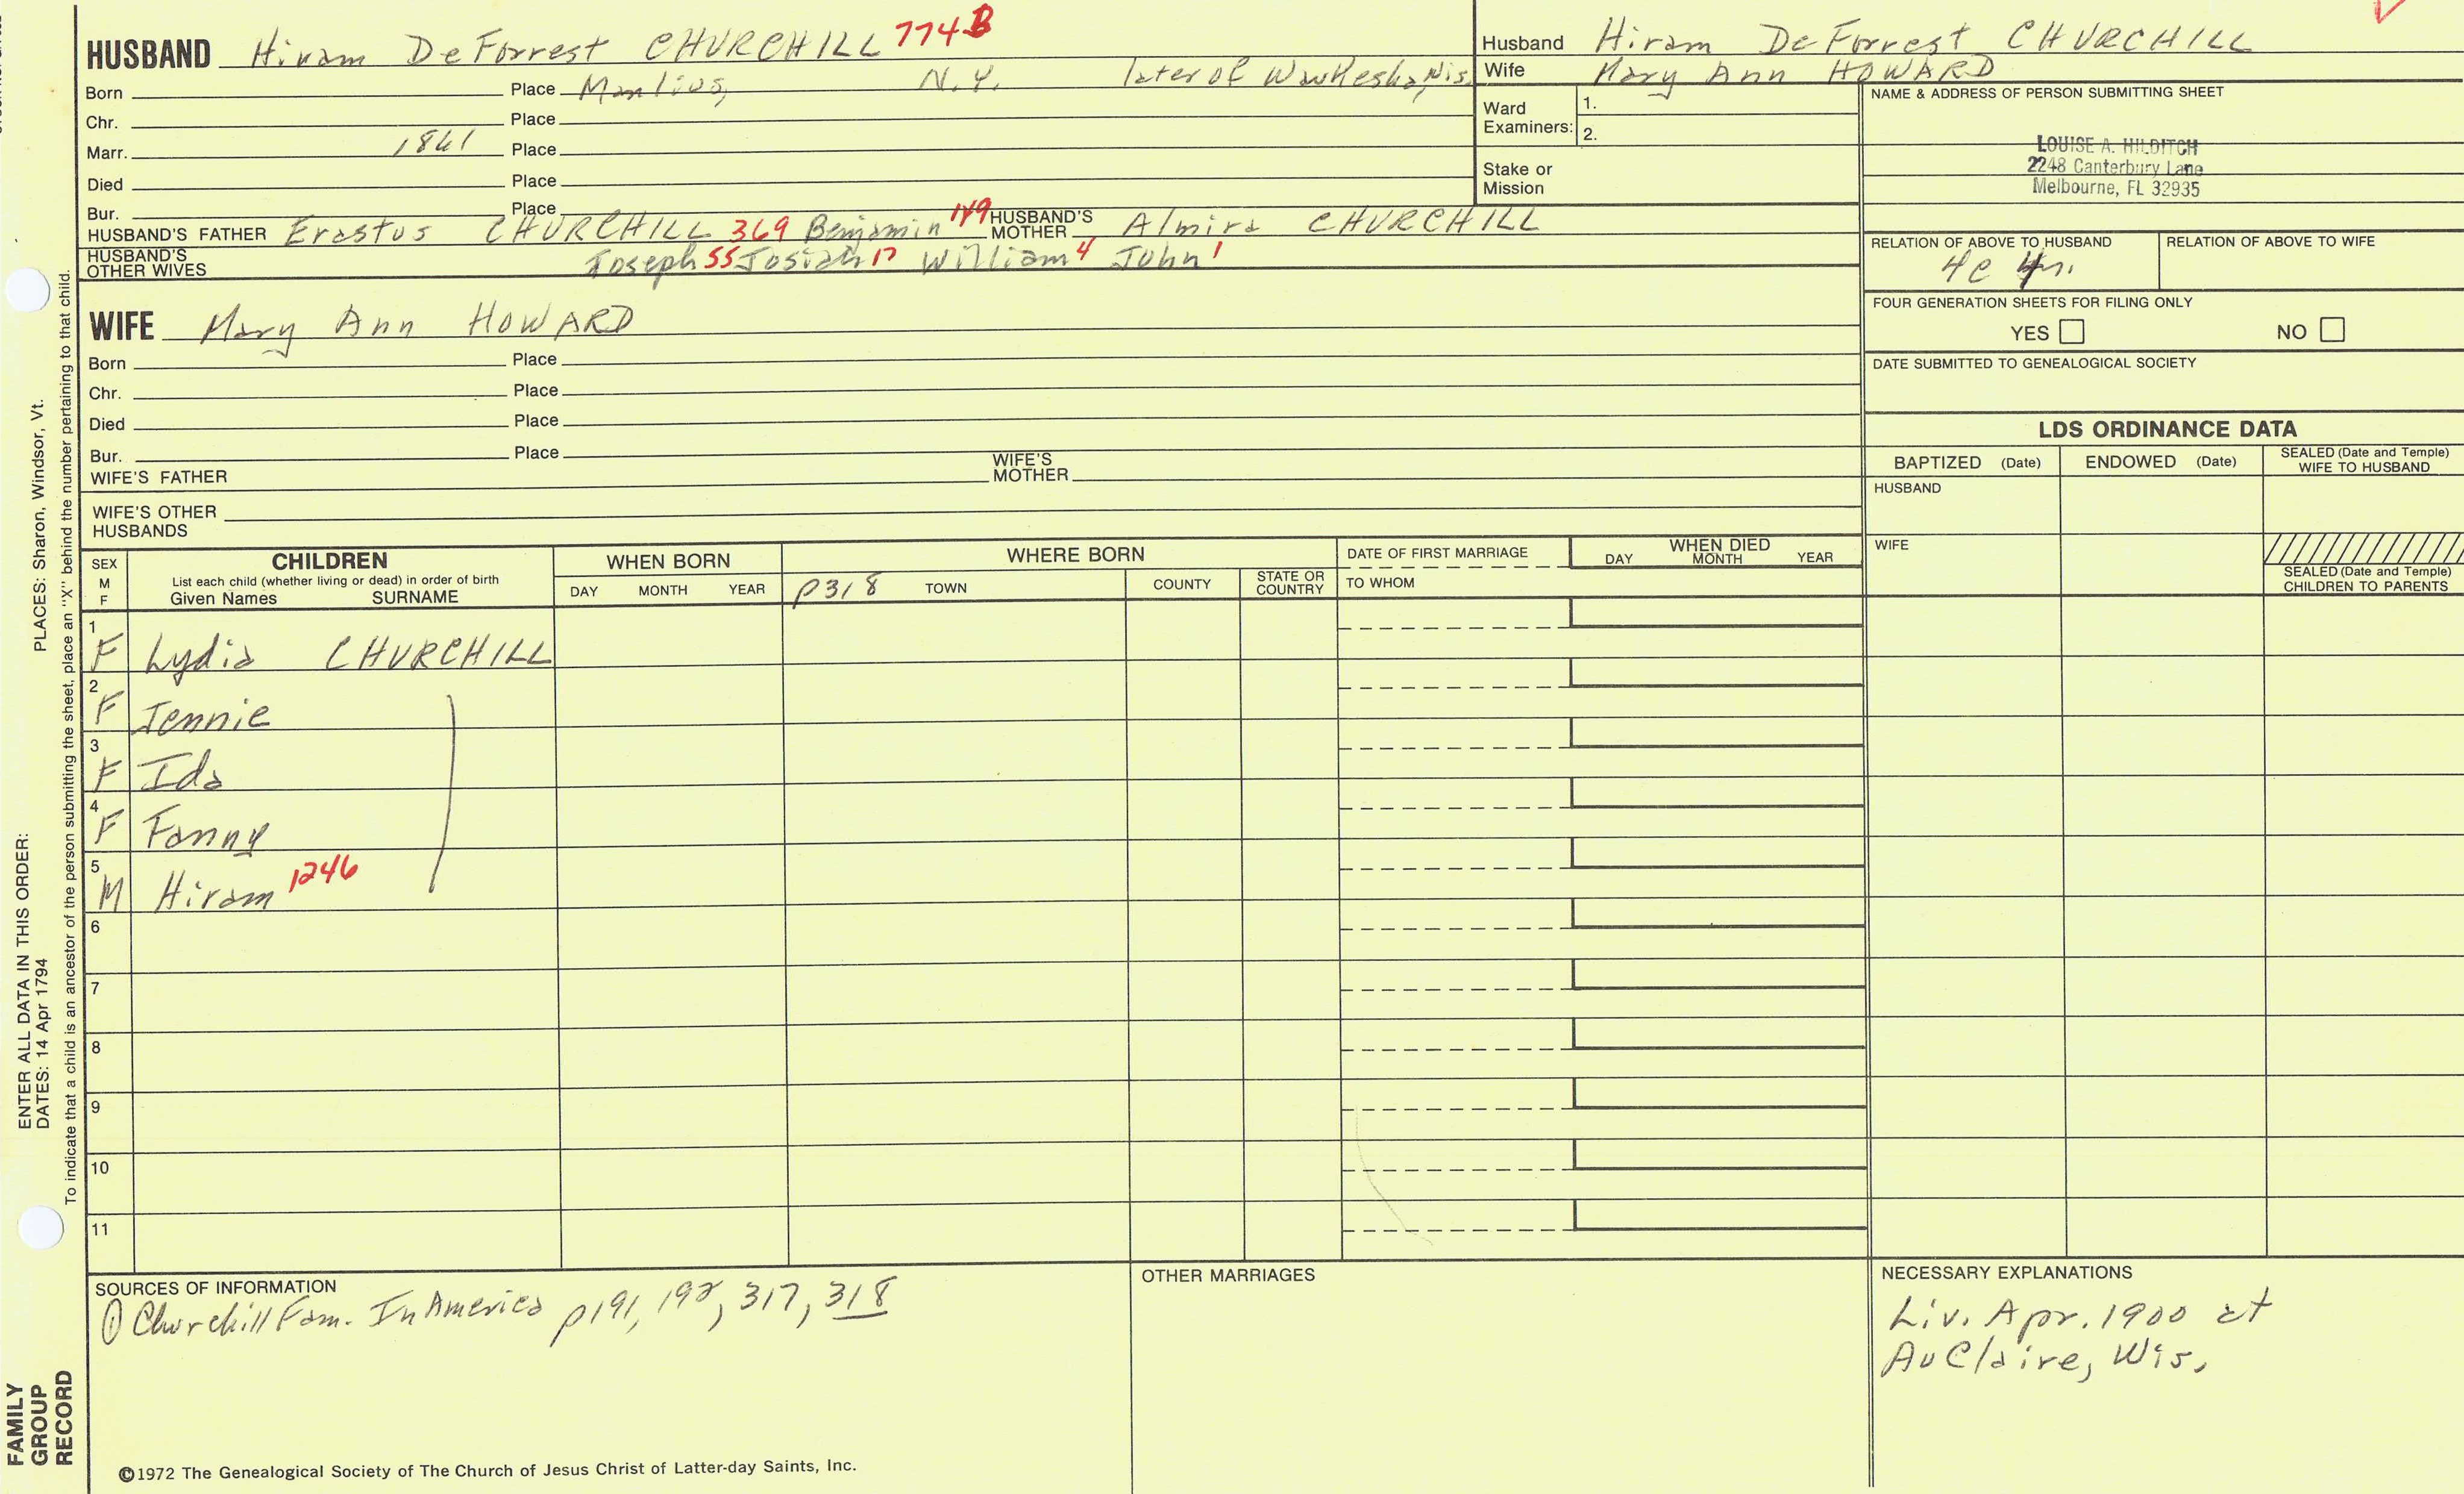 HUSBAND Hiram DeForrest CHURCHILL 774B
Born Place Manlius, N.Y. later of Waukesha, Wis.
Chr. Place
Marr. 1861 Place
Died Place
Bur. Place
HUSBAND'S FATHER Erastus CHURCHILL 369 Benjamin 149 HUSBAND'S MOTHER Almira CHURCHILL
HUSBAND'S OTHER WIVES Joseph 55 Josiah 17 William 4 John 1
Husband Hiram DeForrest CHURCHILL
Wife Mary Ann HOWARD
Ward Examiners: 1.
2.
Stake or Mission
NAME & ADDRESS OF PERSON SUBMITTING SHEET
LOUISE A. HILDITCH
2248 Canterbury Lane
Melbourne, FL 32935
RELATION OF ABOVE TO HUSBAND RELATION OF ABOVE TO WIFE
4c 4r.
FOUR GENERATION SHEETS FOR FILING ONLY
YES NO
DATE SUBMITTED TO GENEALOGICAL SOCIETY
WIFE Mary Ann HOWARD
Born Place
Chr. Place
Died Place
Bur. Place
WIFE'S FATHER WIFE'S MOTHER
WIFE'S OTHER HUSBANDS
LDS ORDINANCE DATA
BAPTIZED (Date) ENDOWED (Date) SEALED (Date and Temple) WIFE TO HUSBAND
HUSBAND
WIFE
SEALED (Date and Temple) CHILDREN TO PARENTS
SEX M F
CHILDREN
List each child (whether living or dead) in order of birth
Given Names SURNAME
WHEN BORN
DAY MONTH YEAR
WHERE BORN
p318 TOWN COUNTY STATE OR COUNTRY
DATE OF FIRST MARRIAGE
TO WHOM
WHEN DIED
DAY MONTH YEAR
1 F Lydia CHURCHILL
2 F Jennie
3 F Ida
4 F Fanny
5 M Hiram 1246
6
7
8
9
10
11
SOURCES OF INFORMATION
① Churchill Fam. In America p191, 192, 317, 318
OTHER MARRIAGES
NECESSARY EXPLANATIONS
Liv. Apr. 1900 at
AuClaire, Wis.
©1972 The Genealogical Society of The Church of Jesus Christ of Latter-day Saints, Inc.
FAMILY GROUP RECORD
ENTER ALL DATA IN THIS ORDER:
DATES: 14 Apr 1794 PLACES: Sharon, Windsor, Vt.
To indicate that a child is an ancestor of the person submitting the sheet, place an "X" behind the number pertaining to that child.